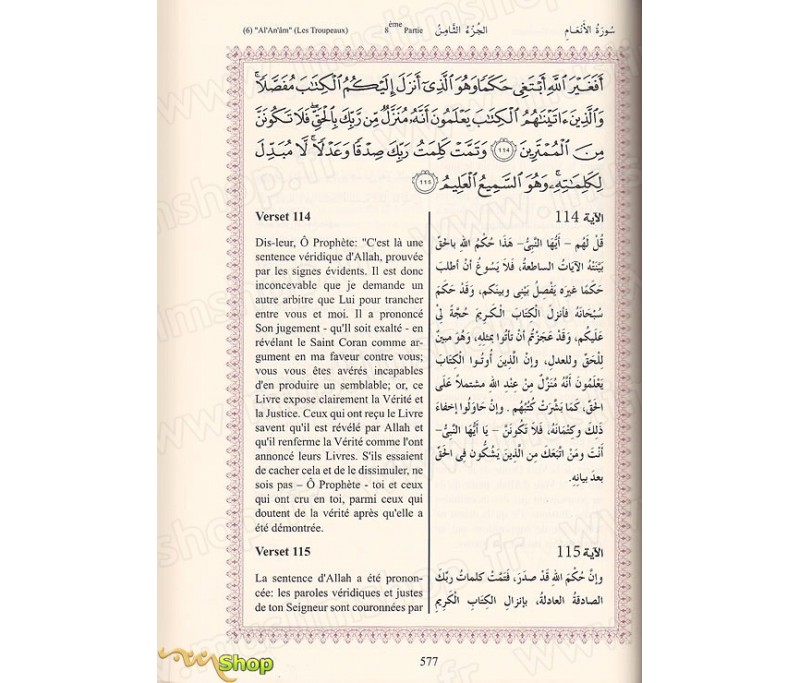 (6) "Al'An'âm" (Les Troupeaux) 8ème Partie الجُزءُ الثَّامِنُ سُورَةُ الأَنْعَامِ
أَفَغَيْرَ ٱللَّهِ أَبْتَغِى حَكَمًا وَهُوَ ٱلَّذِىٓ أَنزَلَ إِلَيْكُمُ ٱلْكِتَٰبَ مُفَصَّلًا ۚ
وَٱلَّذِينَ ءَاتَيْنَٰهُمُ ٱلْكِتَٰبَ يَعْلَمُونَ أَنَّهُۥ مُنَزَّلٌ مِّن رَّبِّكَ بِٱلْحَقِّ ۖ فَلَا تَكُونَنَّ
مِنَ ٱلْمُمْتَرِينَ ١١٤ وَتَمَّتْ كَلِمَتُ رَبِّكَ صِدْقًا وَعَدْلًا ۚ لَّا مُبَدِّلَ
لِكَلِمَٰتِهِۦ ۚ وَهُوَ ٱلسَّمِيعُ ٱلْعَلِيمُ ١١٥
Verset 114
Dis-leur, Ô Prophète: "C'est là une
sentence véridique d'Allah, prouvée
par les signes évidents. Il est donc
inconcevable que je demande un
autre arbitre que Lui pour trancher
entre vous et moi. Il a prononcé
Son jugement - qu'Il soit exalté - en
révélant le Saint Coran comme ar-
gument en ma faveur contre vous;
vous vous êtes avérés incapables
d'en produire un semblable; or, ce
Livre expose clairement la Vérité et
la Justice. Ceux qui ont reçu le Livre
savent qu'il est révélé par Allah et
qu'il renferme la Vérité comme l'ont
annoncé leurs Livres. S'ils essaient
de cacher cela et de le dissimuler, ne
sois pas – Ô Prophète - toi et ceux
qui ont cru en toi, parmi ceux qui
doutent de la vérité après qu'elle a
été démontrée.
Verset 115
La sentence d'Allah a été pronon-
cée: les paroles véridiques et justes
de ton Seigneur sont couronnées par
الآية 114
قُلْ لَهُم – أَيُّهَا النَّبِيُّ– هَذَا حُكْمُ اللهِ بالحَقّ
بَيَّنَتْهُ الآيَاتُ الساطعةُ، فَلاَ يَسُوغُ أنْ أطلبَ
حَكَمًا غيرَه يَفْصِلُ بَيْنِى وبينكم، وَقَدْ حَكَمَ
سُبْحَانَهُ فأنزلَ الْكِتَابَ الْكَرِيمَ حُجَّةً لِيْ
عَلَيكُم، وَقَدْ عَجَزتُم أنْ تأتُوا بمِثلِهِ، وَهُوَ مبينٌ
للْحَقِّ وللعدلِ، وإنَّ الَّذينَ أُوتُوا الْكِتَابَ
يَعْلَمُونَ أَنَّهُ مُنَزَّلٌ مِنْ عِندِ اللهِ مشتملاً عَلَى
الْحَقِّ، كَمَا بَشَّرَتْ كُتُبُهُم . وإنْ حَاوَلُوا إخفاءَ
ذَلِكَ وكتمَانَهُ، فَلاَ تَكُونَنَّ – يَا أَيُّهَا النَّبِيُّ–
أَنْتَ ومَنْ اتَّبَعَكَ مِنَ الَّذِينَ يَشُكُّون فِى الْحَقِّ
بعدَ بيانِهِ.
الآية 115
وإنَّ حُكْمَ اللهِ قَدْ صدَرَ، فَتَمَّتْ كلماتُ ربِّكَ
الصادقةُ العادلةُ، بإنزالِ الكِتَابِ الْكَرِيمِ
577
Shop